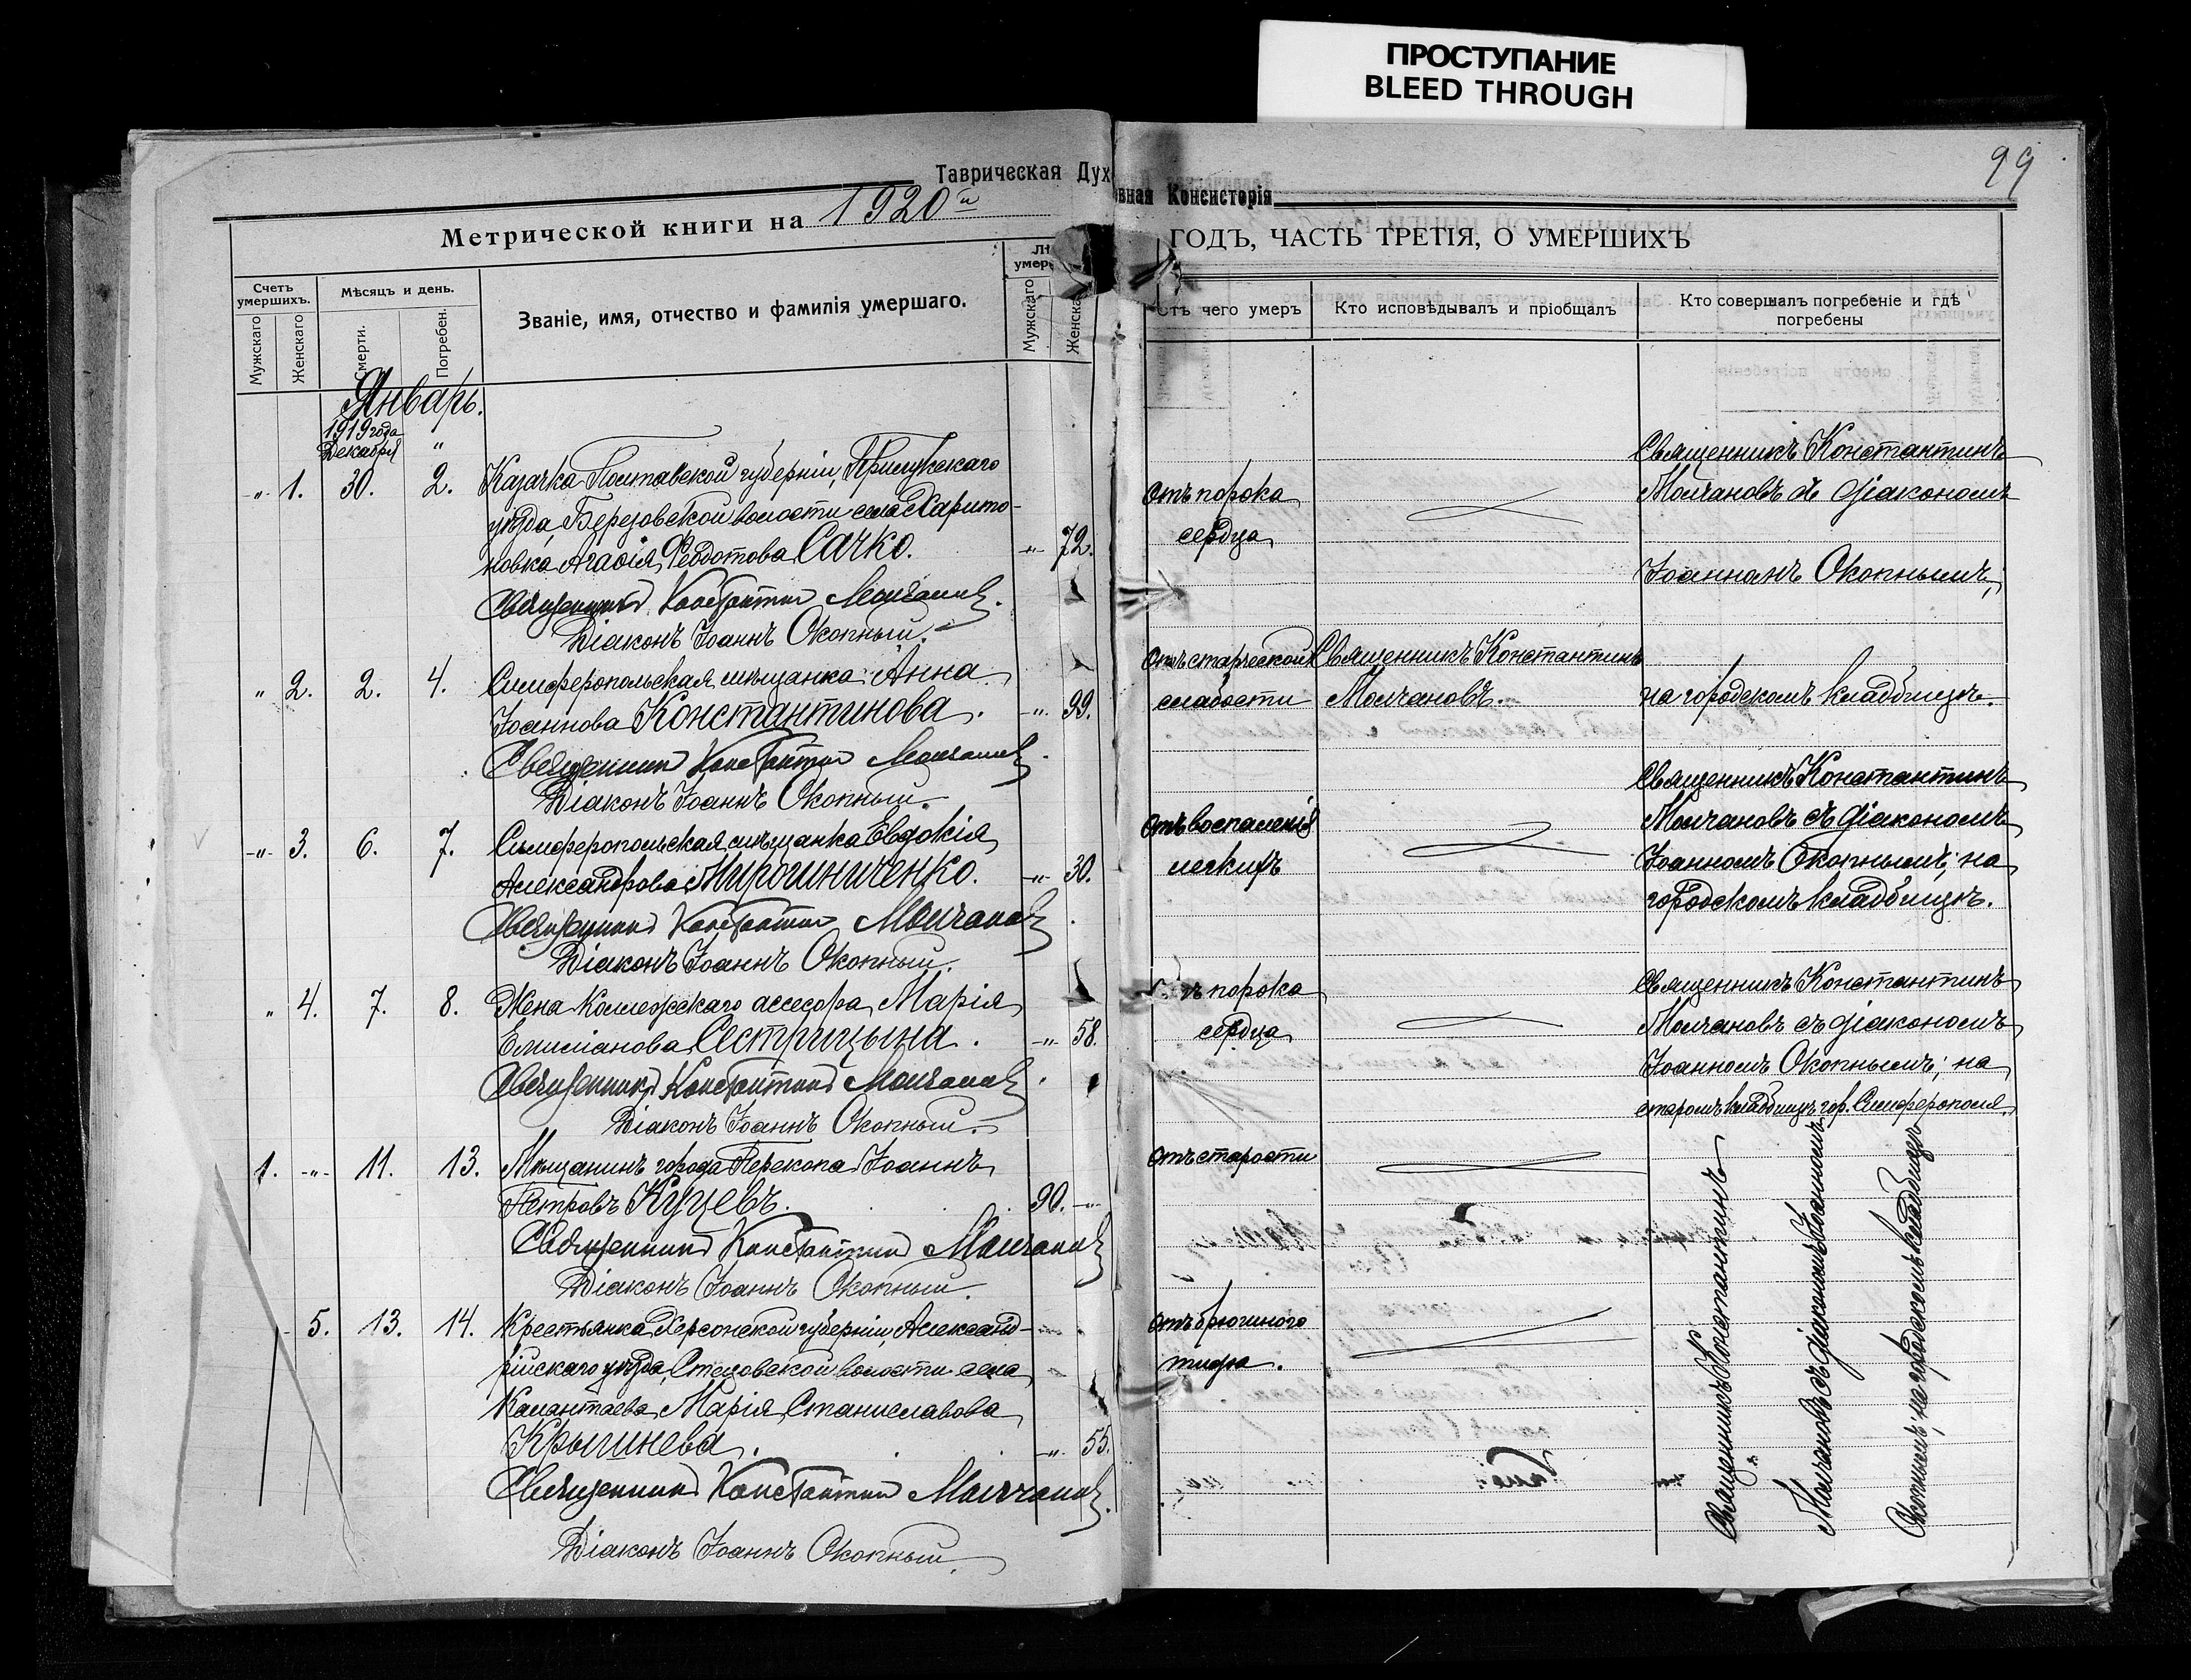 ПРОСТУПАНИЕ
BLEED THROUGH
99
Таврическая Дух
овная Консисторія
Метрической книги на 1920й
ГОДЪ, ЧАСТЬ ТРЕТІЯ, О УМЕРШИХЪ
Счетъ умершихъ.
Мужскаго
Женскаго
Мѣсяцъ и день.
Смерти.
Погребен.
Званіе, имя, отчество и фамилія умершаго.
умер
Мужскаго
Женска
Отъ чего умеръ
Кто исповѣдывалъ и пріобщалъ
Кто совершалъ погребеніе и гдѣ
погребены
Январь.
1919 года
Декабря "
-"- 1. 30. 2. Казачка Полтавской губерніи, Прилукскаго
уѣзда, Березовской волости села Харито-
новка Агафія Ѳеодотова Сачко. -"- 72.
Священникъ Константин Молчановъ.
Діаконъ Іоаннъ Окопный.
отъ порока
сердца
Священникъ Константинъ
Молчановъ съ діакономъ
Іоанномъ Окопнымъ,
" 2. 2. 4. Симферопольская мѣщанка Анна
Іоаннова Константинова. -"- 99.
Священник Константин Молчановъ.
Діаконъ Іоаннъ Окопный.
отъ старческой
слабости
Священникъ Константинъ
Молчановъ.
на городскомъ кладбищѣ.
-"- 3. 6. 7. Симферопольская мѣщанка Евдокія
Александрова Мирошниченко. -"- 30.
Священникъ Константин Молчановъ.
Діаконъ Іоаннъ Окопный.
отъ воспаленія
легкихъ
Священникъ Константинъ
Молчановъ съ діакономъ
Іоанномъ Окопнымъ; на
городскомъ кладбищѣ.
" 4. 7. 8. Жена Коллежскаго ассесора Марія
Емиліанова Сестрицына. -"- 58.
Священникъ Константинъ Молчановъ.
Діаконъ Іоаннъ Окопный.
порока
сердца
Священникъ Константинъ
Молчановъ съ діакономъ
Іоанномъ Окопнымъ; на
старомъ кладбищѣ гор. Симферополя.
1. -"- 11. 13. Мѣщанинъ города Перекопа Іоаннъ
Петровъ Куцевъ. 90. -"-
Священникъ Константинъ Молчановъ
Діаконъ Іоаннъ Окопный.
отъ старости
5. 13. 14. Крестьянка Херсонской губерніи, Александ-
рійскаго уѣзда, волости села
Калантаева Марія Станиславова
Крышнева. -"- 55.
Священникъ Константин Молчановъ.
Діаконъ Іоаннъ Окопный.
отъ брюшного
тифа.
Священникъ Константинъ
Молчановъ съ діакономъ Іоанномъ
Окопнымъ; на городскомъ кладбищѣ